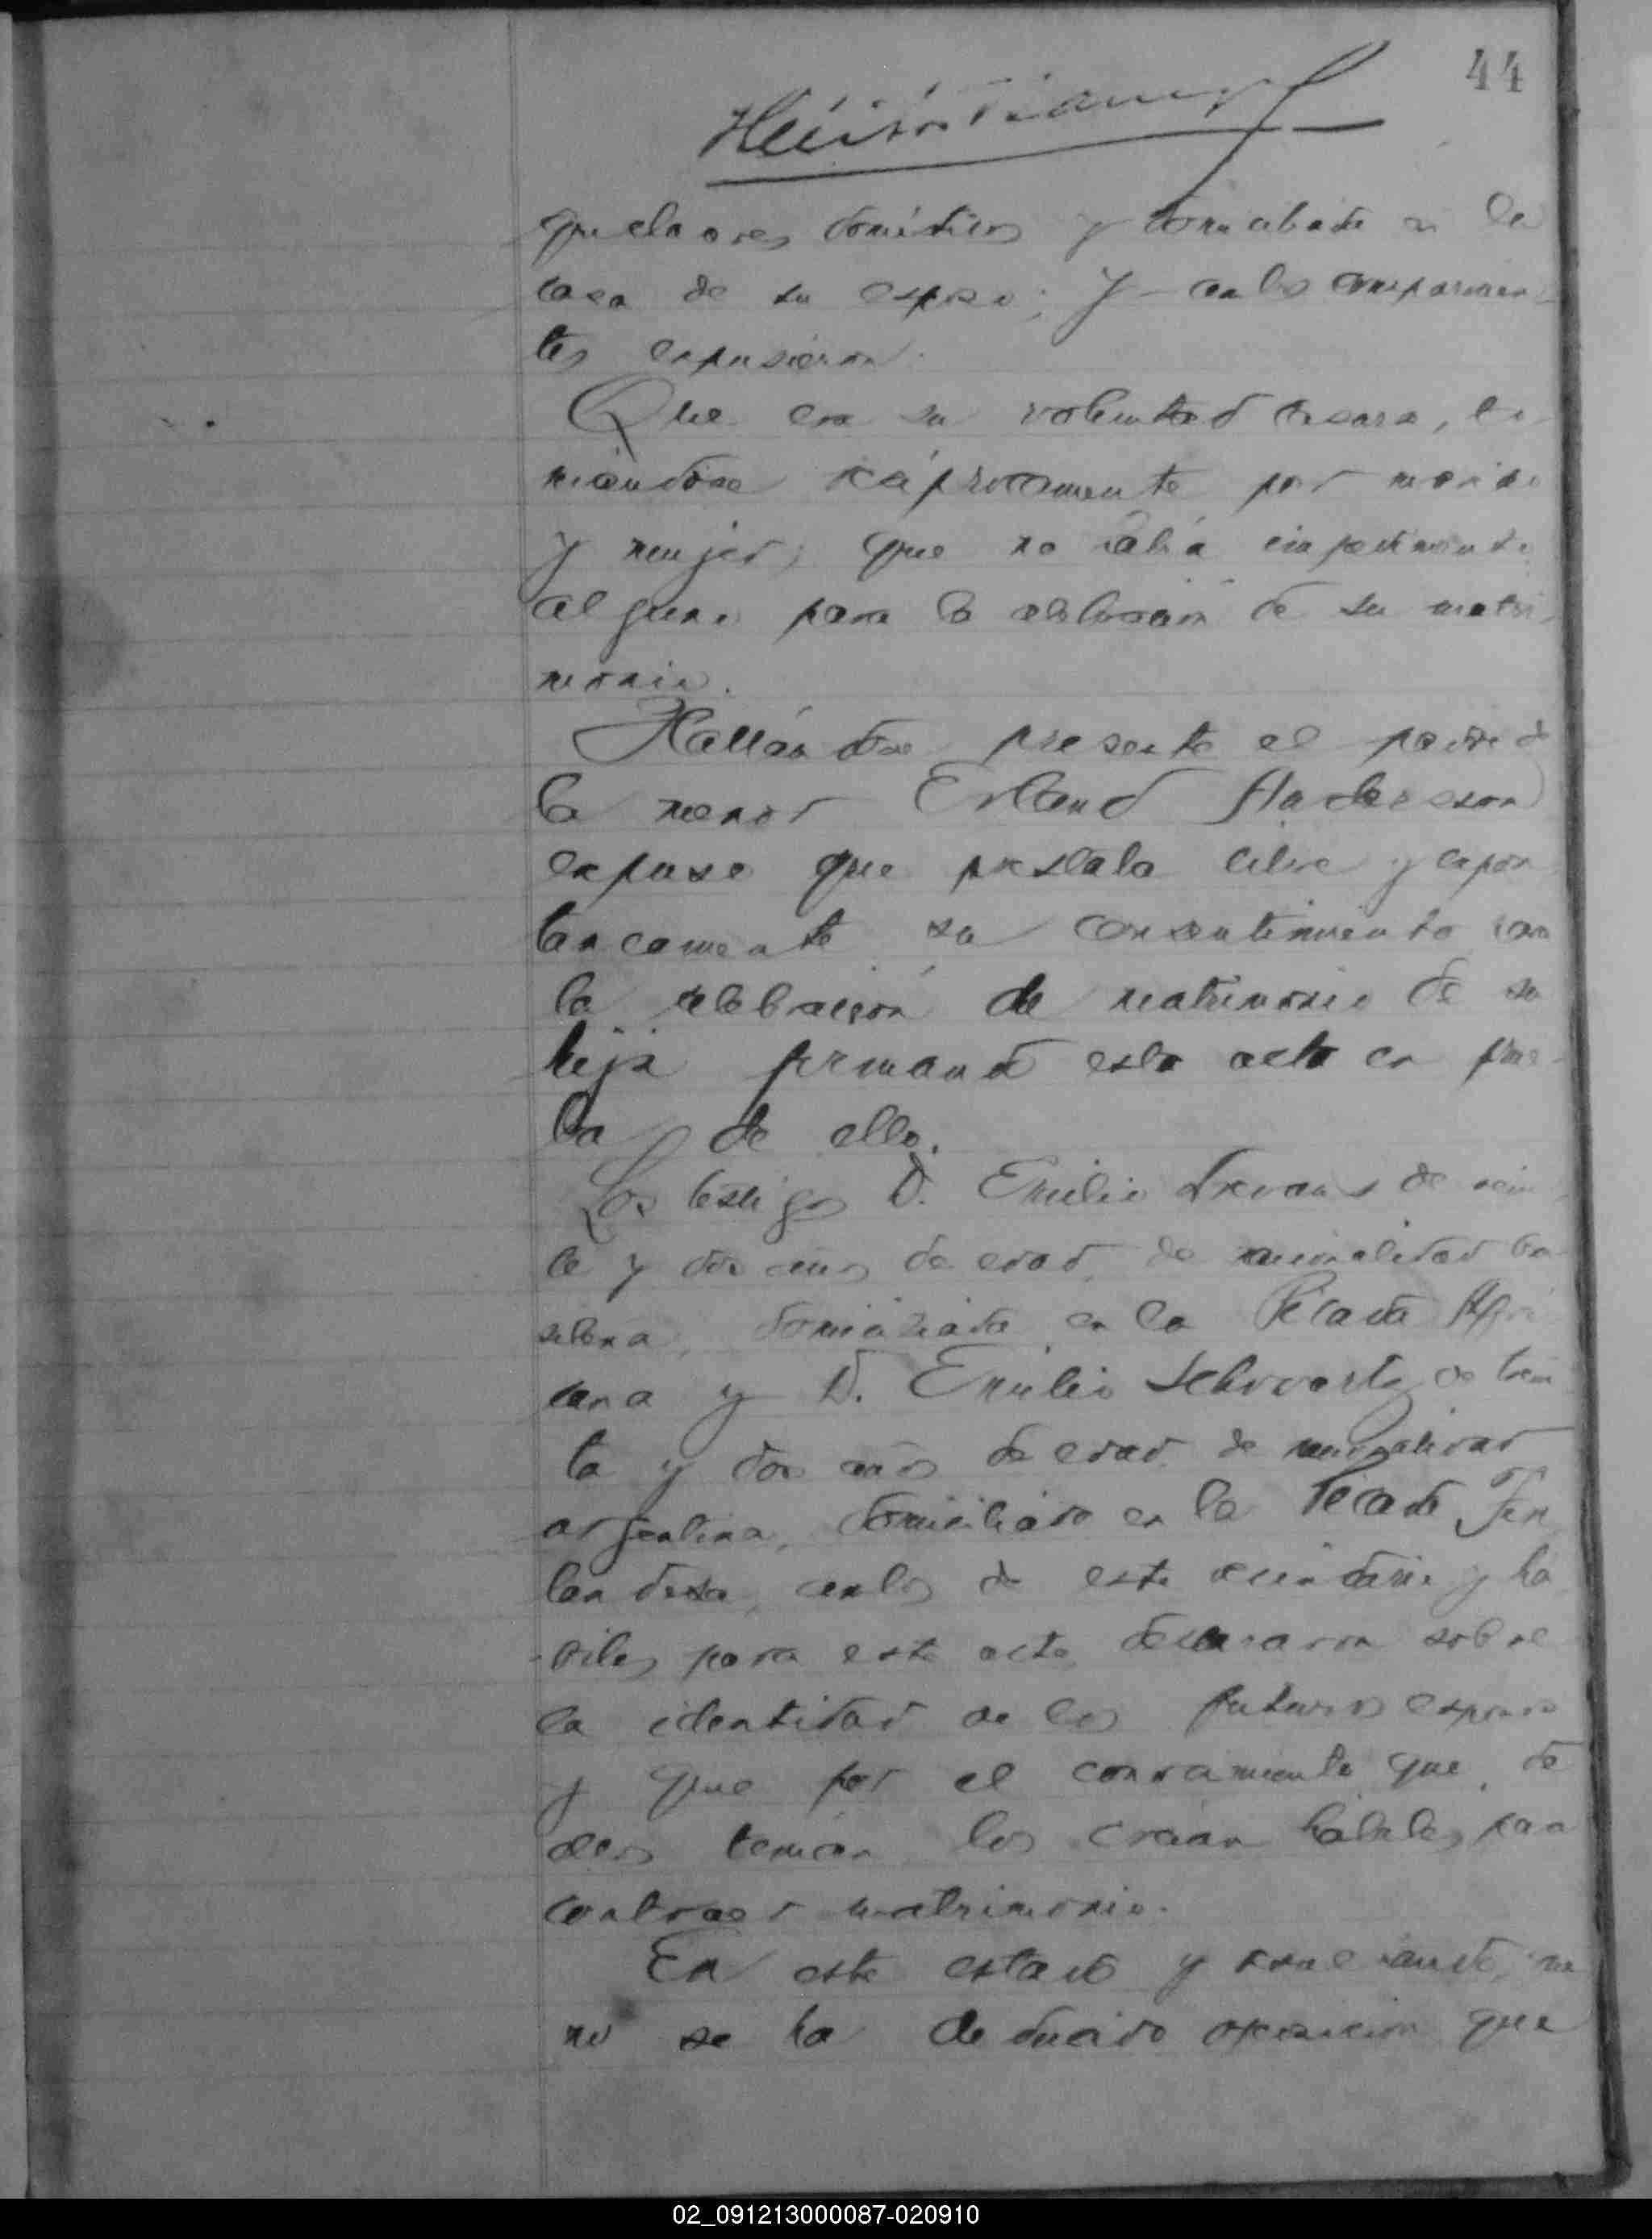 44
quehaceres domésticos y domiciliada en la
casa de su esposo; y ambos comparecien-
tes expusieron:
Que era su voluntad casarse, to-
miandose reciprocamente por marido
y mujer; que no había impedimento
alguno para la celebración de su matri-
monio.
Hallándose presente el padre de
la menor Erland Anderesson
expuso que prestaba libre y espon
taneamente su consentimiento para
la celebracion de matrimonio de su
hija firmando esta acta en prue-
ba de ello.
Los testigos D. Emilio de vein
te y dos años de edad, de nacionalidad bra
silena, domiciliado en la Picada Afri
cana y D. Emilio Schwartz de trein
ta y dos años de edad de nacionalidad
argentina, domiciliado en la Picada Fin
landesa, ambos de este vecindario y ha
biles para este acto declararon sobre
la identidad de los futuros esposos
y que por el conocamiento que de
ellos tenian los creian habiles para
contraer matrimonio.
En este estado y
no se ha deducido oposicion que
02_091213000087-020910